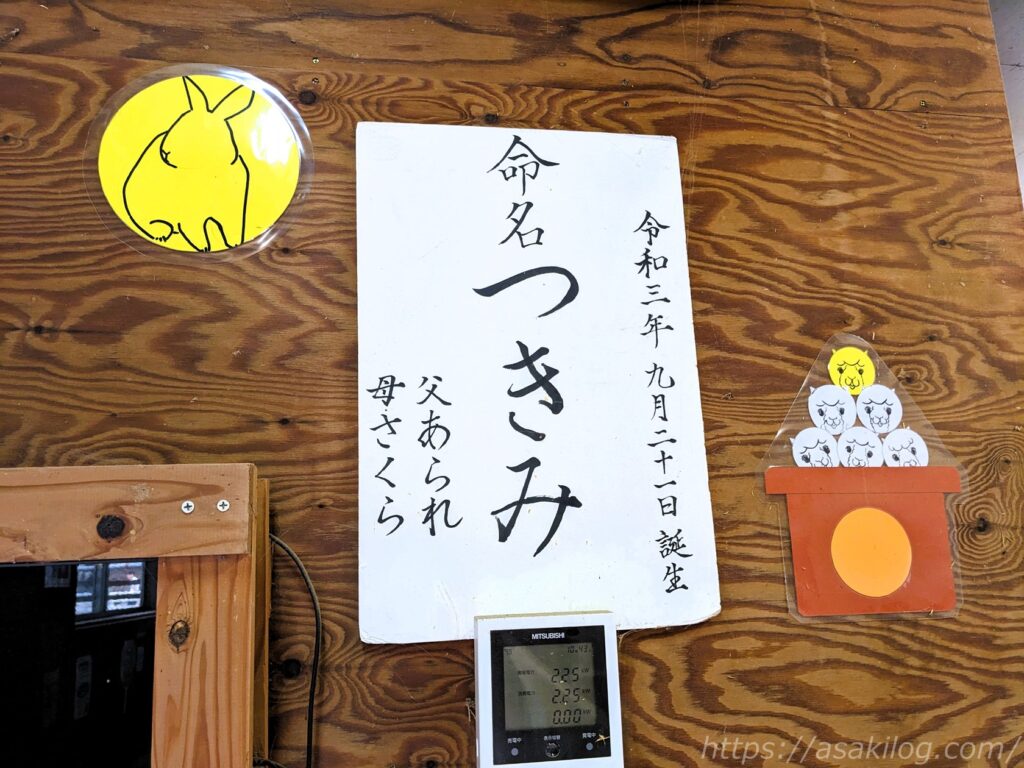 令和三年 九月二十一日 誕生
命名 つきみ
父あられ
母さくら
MITSUBISHI
10:43
2.25 kW
2.25 kW
0.00 kW
https://asakilog.com/